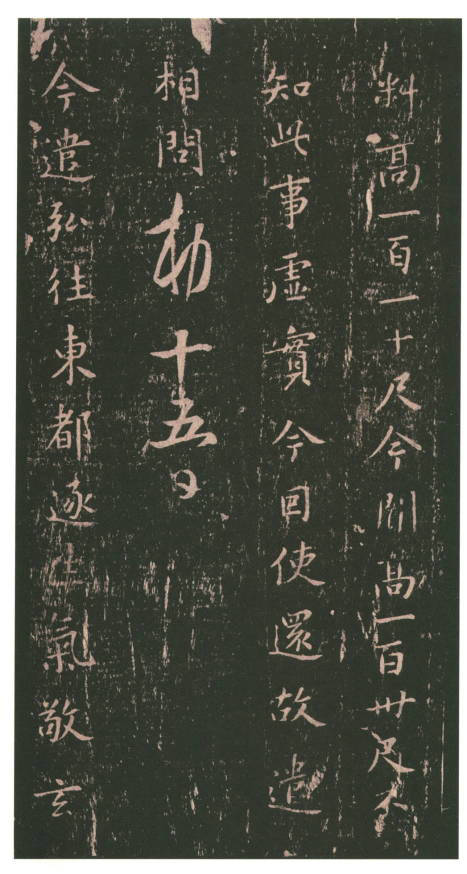 料高一百一十尺今聞高一百卌尺不
知此事虛實今因使還故遣
相問勅十五日
今遣弘往東都逐生氣敬玄